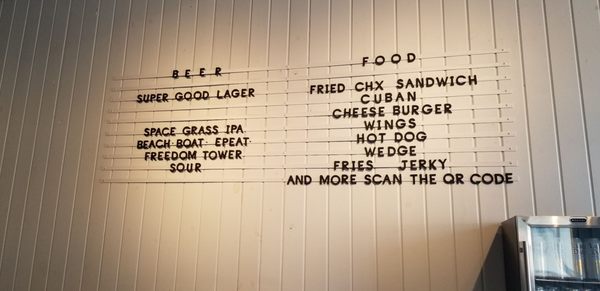 BEER
SUPER GOOD LAGER
SPACE GRASS IPA
BEACH BOAT EPEAT
FREEDOM TOWER
SOUR
FOOD
FRIED CHX SANDWICH
CUBAN
CHEESE BURGER
WINGS
HOT DOG
WEDGE
FRIES JERKY
AND MORE SCAN THE QR CODE